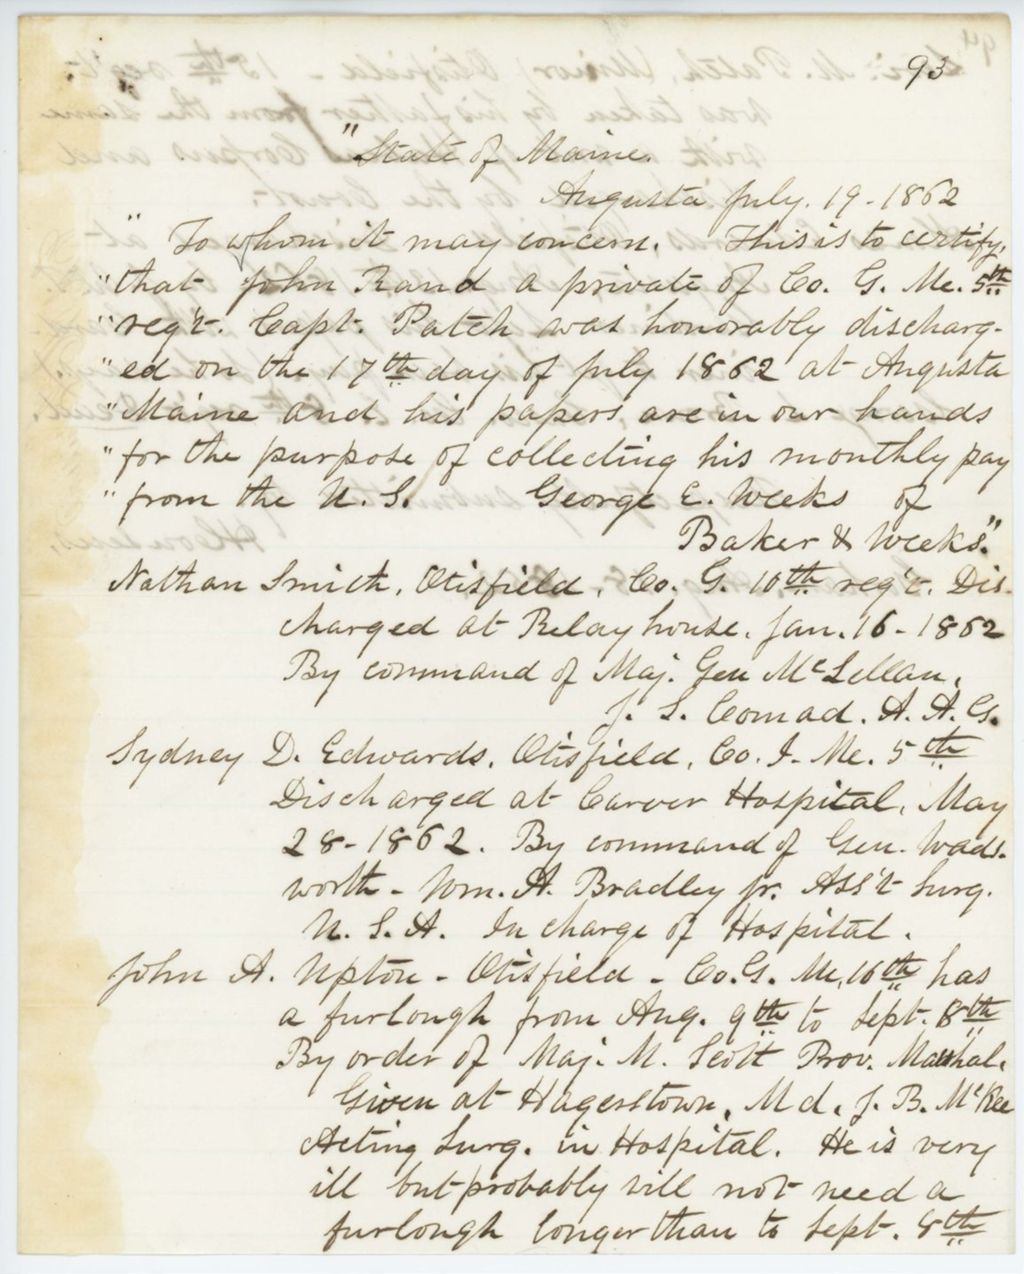 93
"State of Maine.
Augusta July. 19-1862
" To whom it may concern. This is to certify,
" that John Rand a private of Co. G. Me. 5th
" reg't. Capt. Patch was honorably discharg-
" ed on the 17th day of July 1862 at Augusta
" Maine and his papers are in our hands
" for the purpose of collecting his monthly pay
" from the U. S. George E. Weeks of
Baker & Weeks."
Nathan Smith, Otisfield, Co. G. 10th reg't. Dis-
charged at Relay house. Jan. 16-1862
By command of Maj. Gen McLellan,
J. S. Conrad. A. A. G.
Sydney D. Edwards, Otisfield, Co. I. Me. 5th
Discharged at Carver Hospital, May
28-1862. By command of Gen. Wads-
worth - Wm. A. Bradley jr. Ass't Surg.
U. S. A. In charge of Hospital.
John A. Upton - Otisfield - Co. G. Me, 10th has
a furlough from Aug. 9th to Sept. 8th
By order of Maj. M. Scott Prov. Marshal.
Given at Hagerstown, Md, J. B. McKee
Acting Surg. in Hospital. He is very
ill but probably will not need a
furlough longer than to Sept. 8th